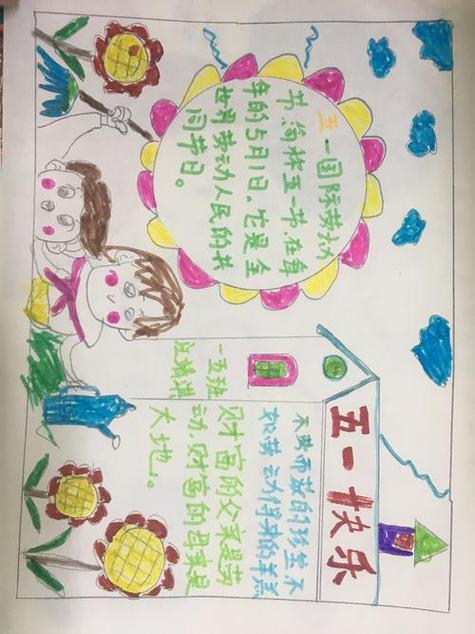 五一国际劳动
节,简称五一节,在每
年的5月1日。它是全
世界劳动人民的共
同节日。
五一快乐
不劳而获的 生不
劳动得来的羊羔
财富的父亲是劳
动,财富的母亲是
大地。
一五班